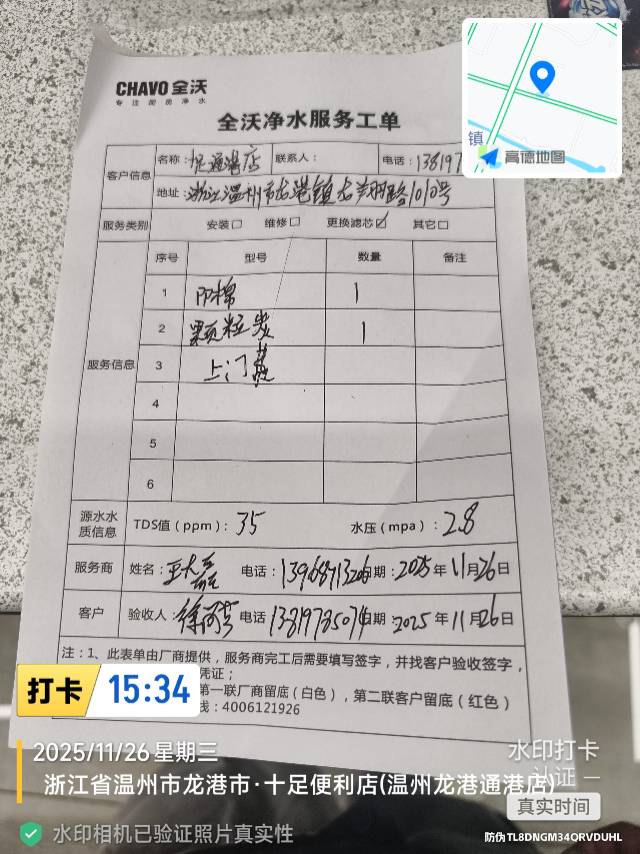 镇
高德地图
CHAVO 全沃
专注厨房净水
全沃净水服务工单
客户信息 名称: 足通港店 联系人: 电话: 138197
地址: 浙江温州市龙港镇龙翔路1010号
服务类别 安装□ 维修□ 更换滤芯☑ 其它□
服务信息
序号 型号 数量 备注
1 PP棉 1
2 颗粒炭 1
3 上门费
4
5
6
源水水质信息 TDS值(ppm): 35 水压(mpa): 2.8
服务商 姓名: 电话: 日期: 2025年11月26日
客户 验收人: 电话 日期: 2025年11月26日
注:1、此表单由厂商提供,服务商完工后需要填写签字,并找客户验收签字,
凭证;
第一联厂商留底(白色),第二联客户留底(红色)
线:4006121926
打卡 15:34
2025/11/26 星期三
浙江省温州市龙港市·十足便利店(温州龙港通港店)
水印打卡
认证
真实时间
水印相机已验证照片真实性
防伪 TL8DNGM34QRVDUHL